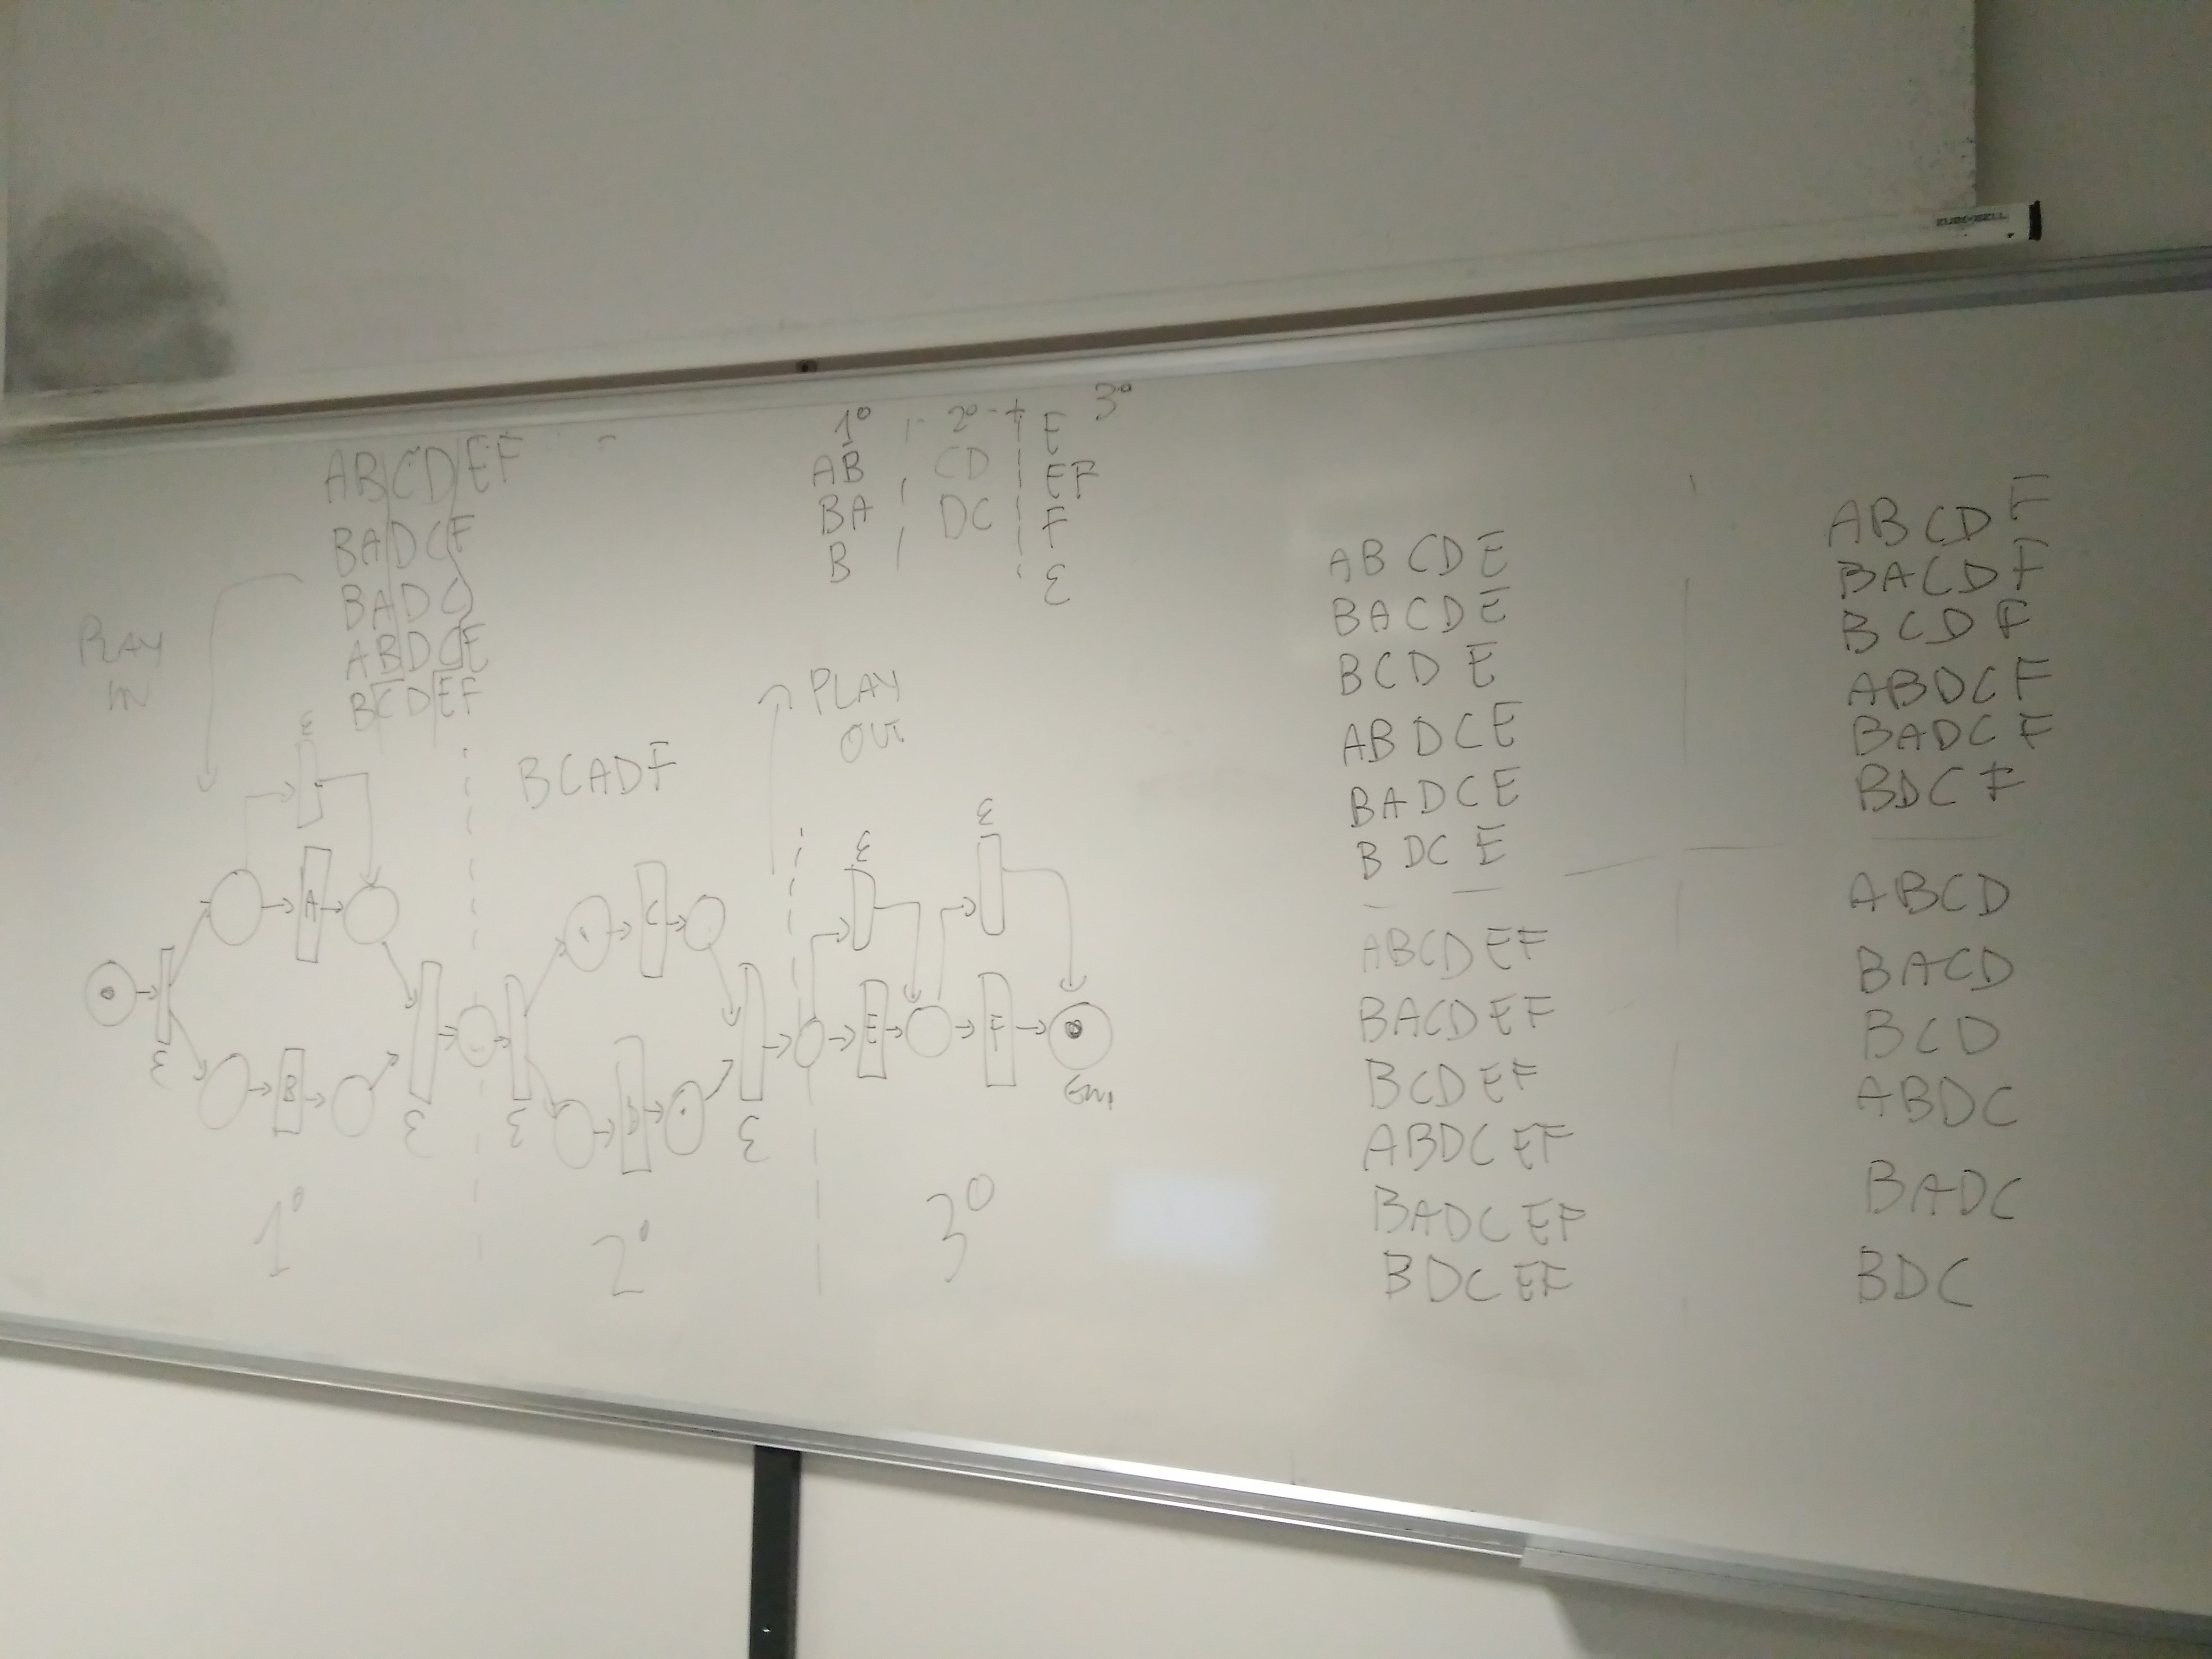 ABCDEF
BADCF
BADC
ABDCE
BCDEF
PLAY
IN
1° 2° 3°
E
AB CD EF
BA DC F
B ε
PLAY
OUT
BCADF
ε
A
B
ε
ε
ε
C
D
ε
ε
ε
E
F
END
1°
2°
3°
ABCDE
BACDE
BCDE
ABDCE
BADCE
BDCE
ABCDEF
BACDEF
BCDEF
ABDCEF
BADCEF
BDCEF
ABCDF
BACDF
BCDF
ABDCF
BADCF
BDCF
ABCD
BACD
BCD
ABDC
BADC
BDC